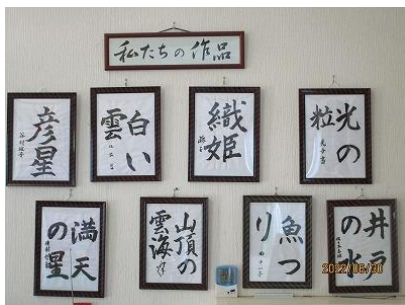 私たちの作品
彦星
白い
雲
織姫
光の
粒
満天
の星
山頂の
雲海
魚つ
り
井戸
の水
2022/06/30